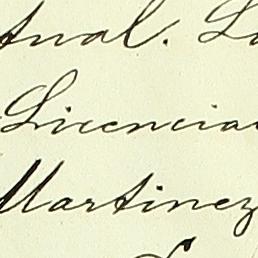 tual. L
Licencia
Martinez